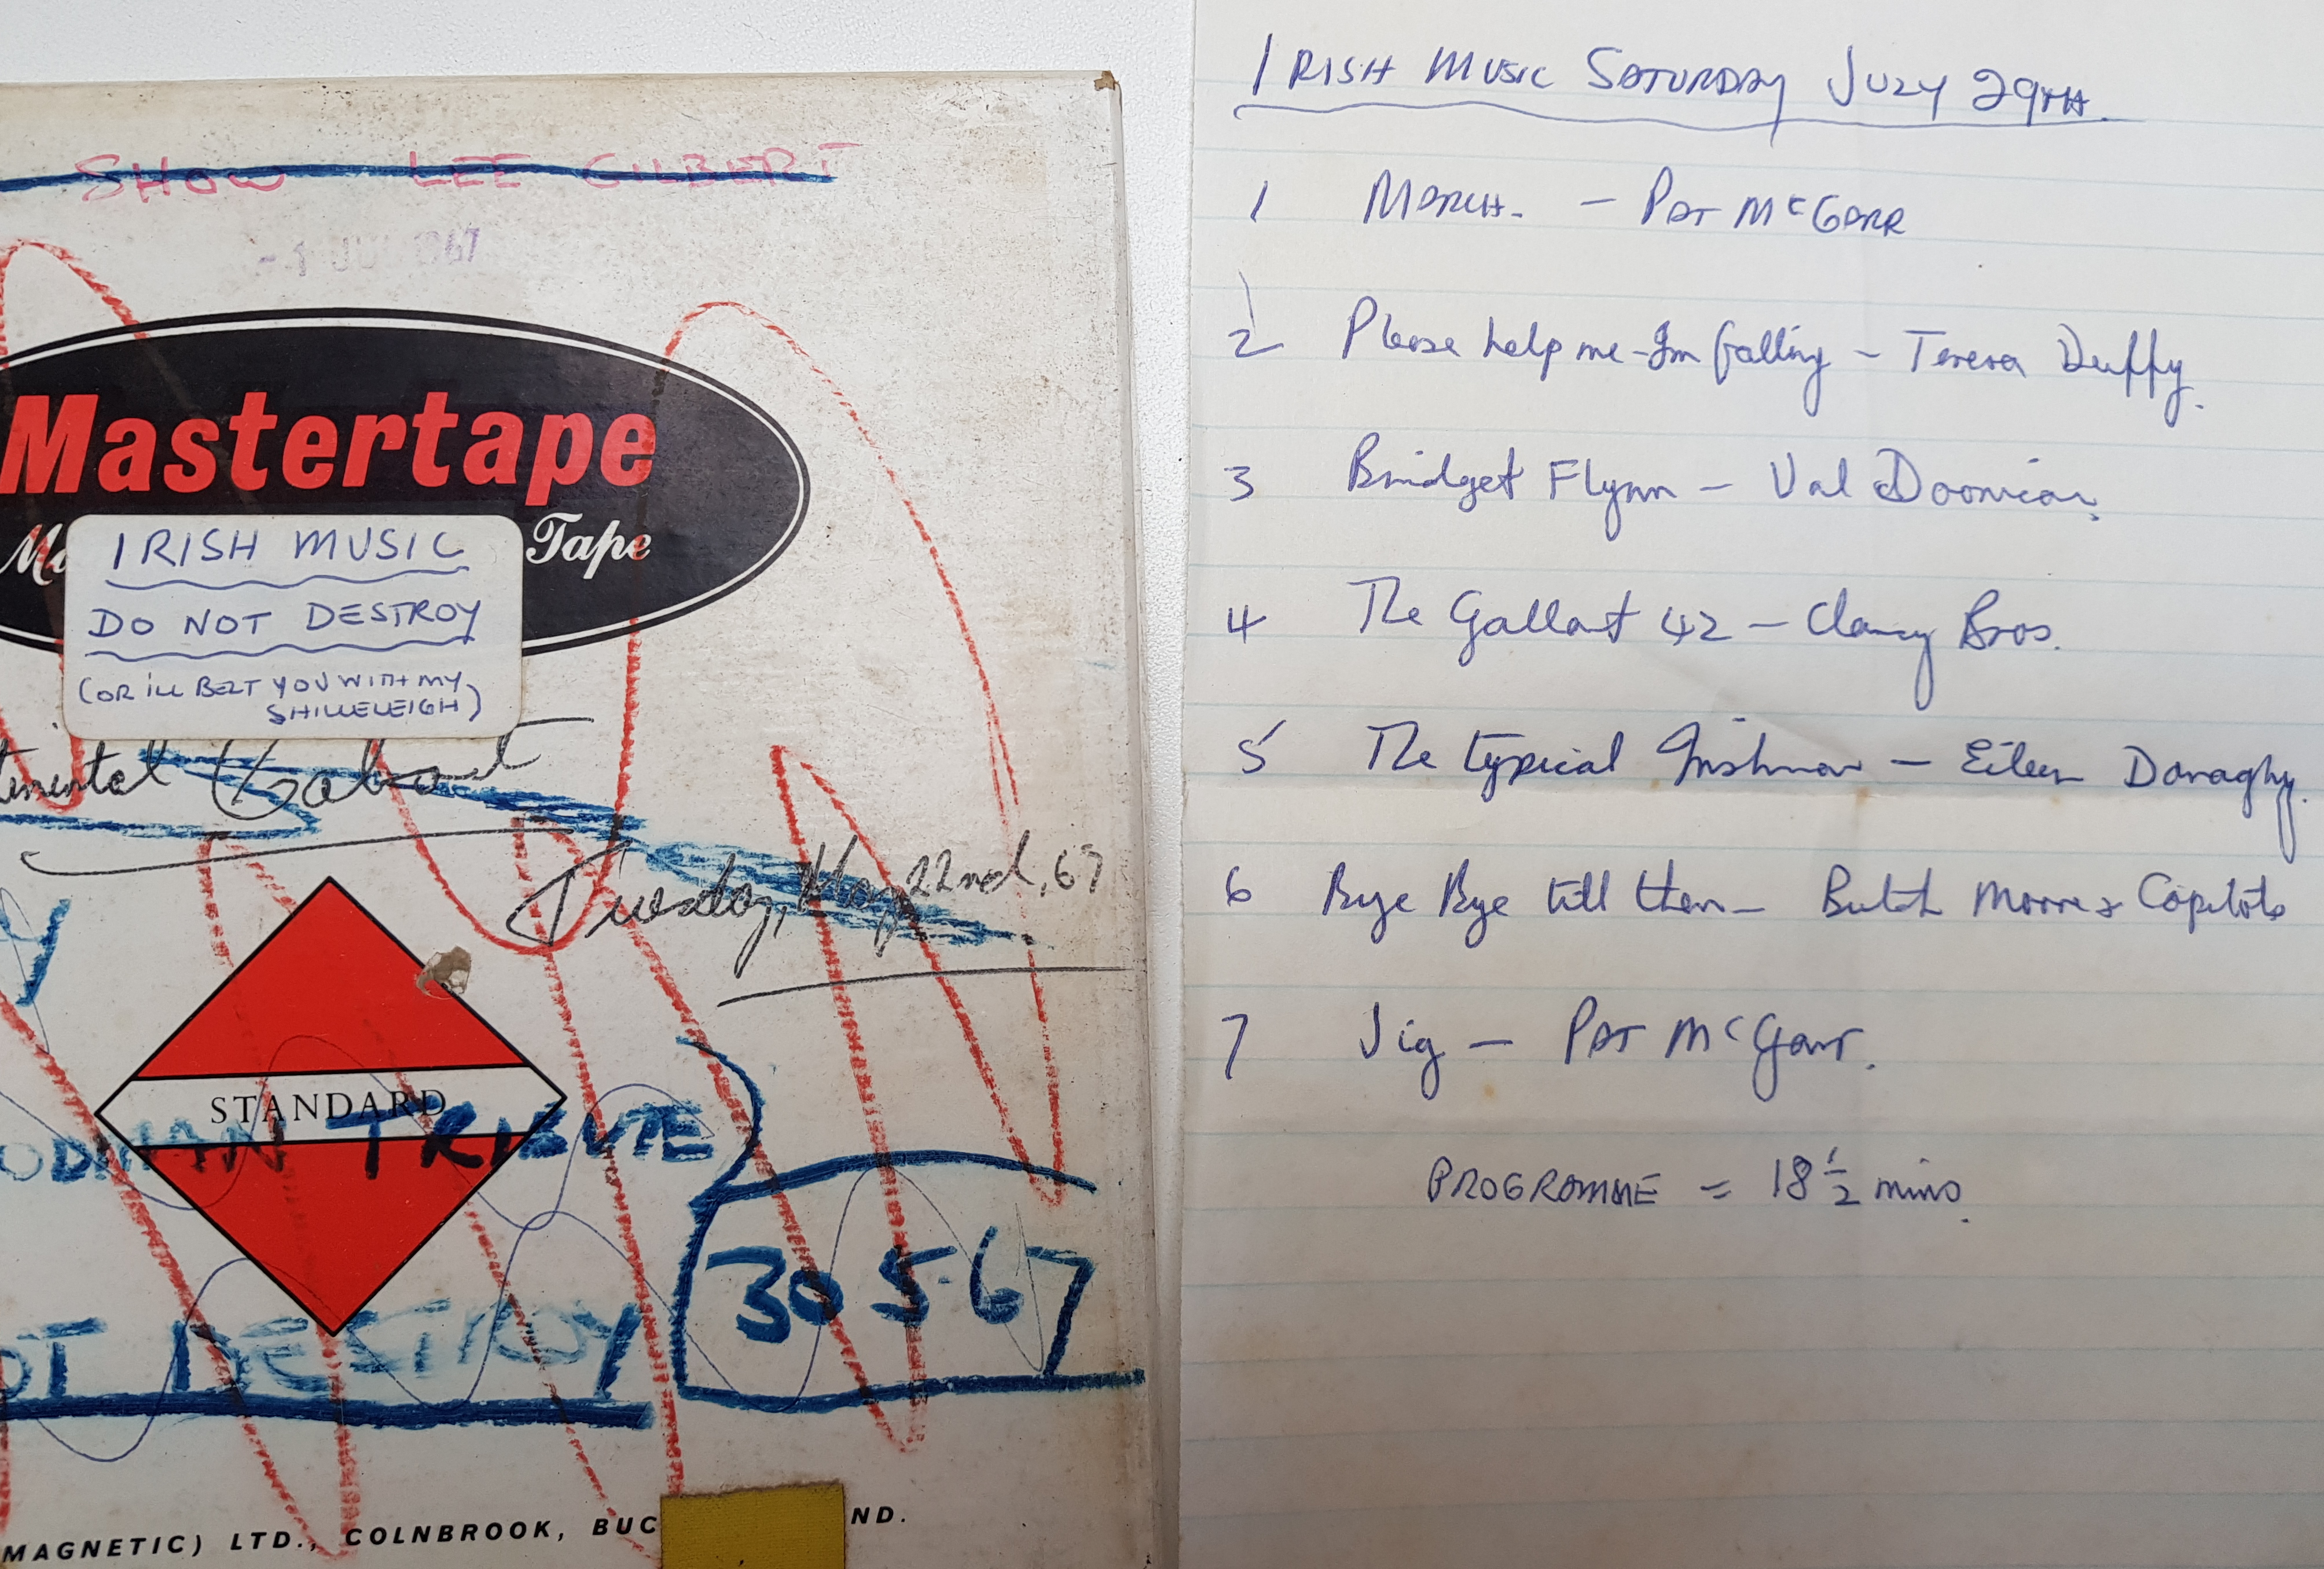 SHOW LEE GILBERT
1967
Mastertape
Tape
IRISH MUSIC
DO NOT DESTROY
(OR ILL BELT YOU WITH MY
SHILLELEIGH)
Tuesday, May 22nd, 67
STANDARD
TRIBUTE
30 5·67
DESTROY
MAGNETIC) LTD., COLNBROOK, BUC ND.
IRISH MUSIC SATURDAY JULY 29TH.
1 MARCH. - PAT McGARR
2 Please help me - Im falling - Teresa Duffy.
3 Bridget Flynn - Val Doonican.
4 The Gallant 42 - Clancy Bros.
5 The typical Irishman - Eileen Donaghy.
6 Bye Bye till then - Butch Moore & Capitols
7 Jig - PAT McGarr.
PROGRAMME = 18 1/2 mins.